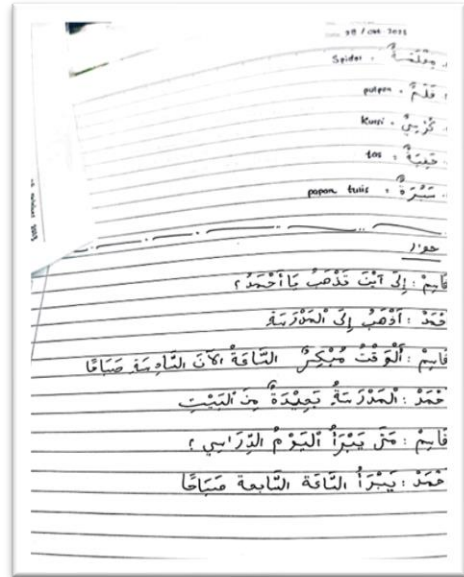 Spidol : مِقْلَمَةٌ
pulpen : قَلَمٌ
kursi : كُرْسِيٌّ
tas : حَقِيْبَةٌ
papan tulis : سَبُّرَةٌ
حوار
قَاسِمْ : إِلَى أَيْنَ تَذْهَبُ يَا أَحْمَدُ ؟
حْمَدْ : أَذْهَبُ إِلَى الْمَدْرَسَةِ
قَاسِمْ : أَلْوَقْتُ مُبْكِرٌ السَّاعَةُ الآنَ السَّادِسَةِ صَبَاحًا
حْمَدْ : الْمَدْرَسَةُ بَعِيْدَةٌ مِنَ الْبَيْتِ
قَاسِمْ : مَتَى يَبْدَأُ الْيَوْمُ الدِّرَاسِي ؟
حْمَدْ : يَبْدَأُ السَّاعَة السَّابِعة صَبَاحًا